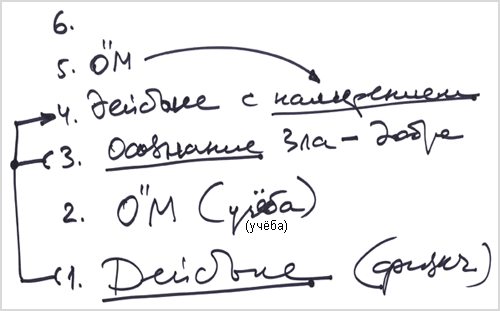 6.
5. ӦМ
4. Действие с намерением
3. Осознание Зла - Добра
2. ӦМ (учёба)
(учёба)
1. Действие (физич)